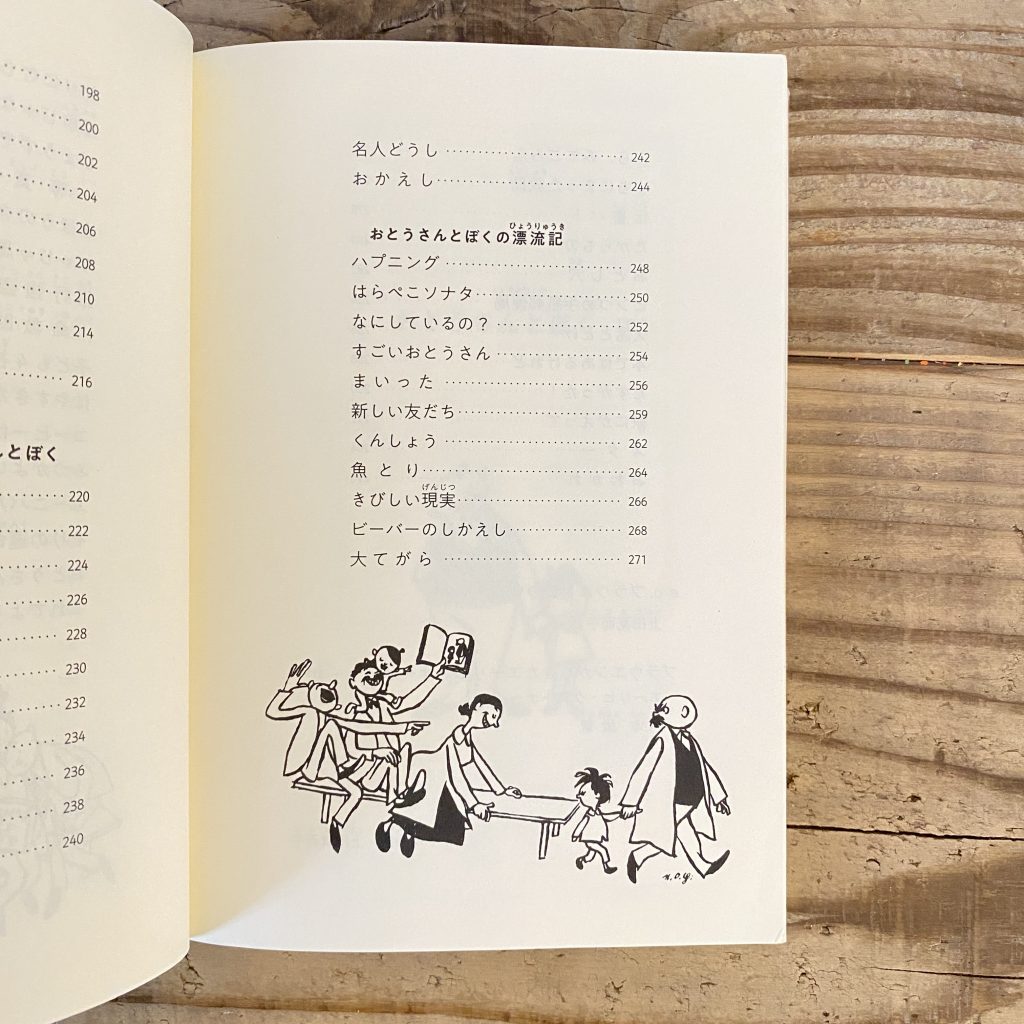 198
200
202
204
206
208
210
214
216
んとぼく
220
222
224
226
228
230
232
234
236
238
240
名人どうし 242
おかえし 244
おとうさんとぼくの漂流記
ひょうりゅうき
ハプニング 248
はらぺこソナタ 250
なにしているの? 252
すごいおとうさん 254
まいった 256
新しい友だち 259
くんしょう 262
魚とり 264
きびしい現実 266
げんじつ
ビーバーのしかえし 268
大てがら 271